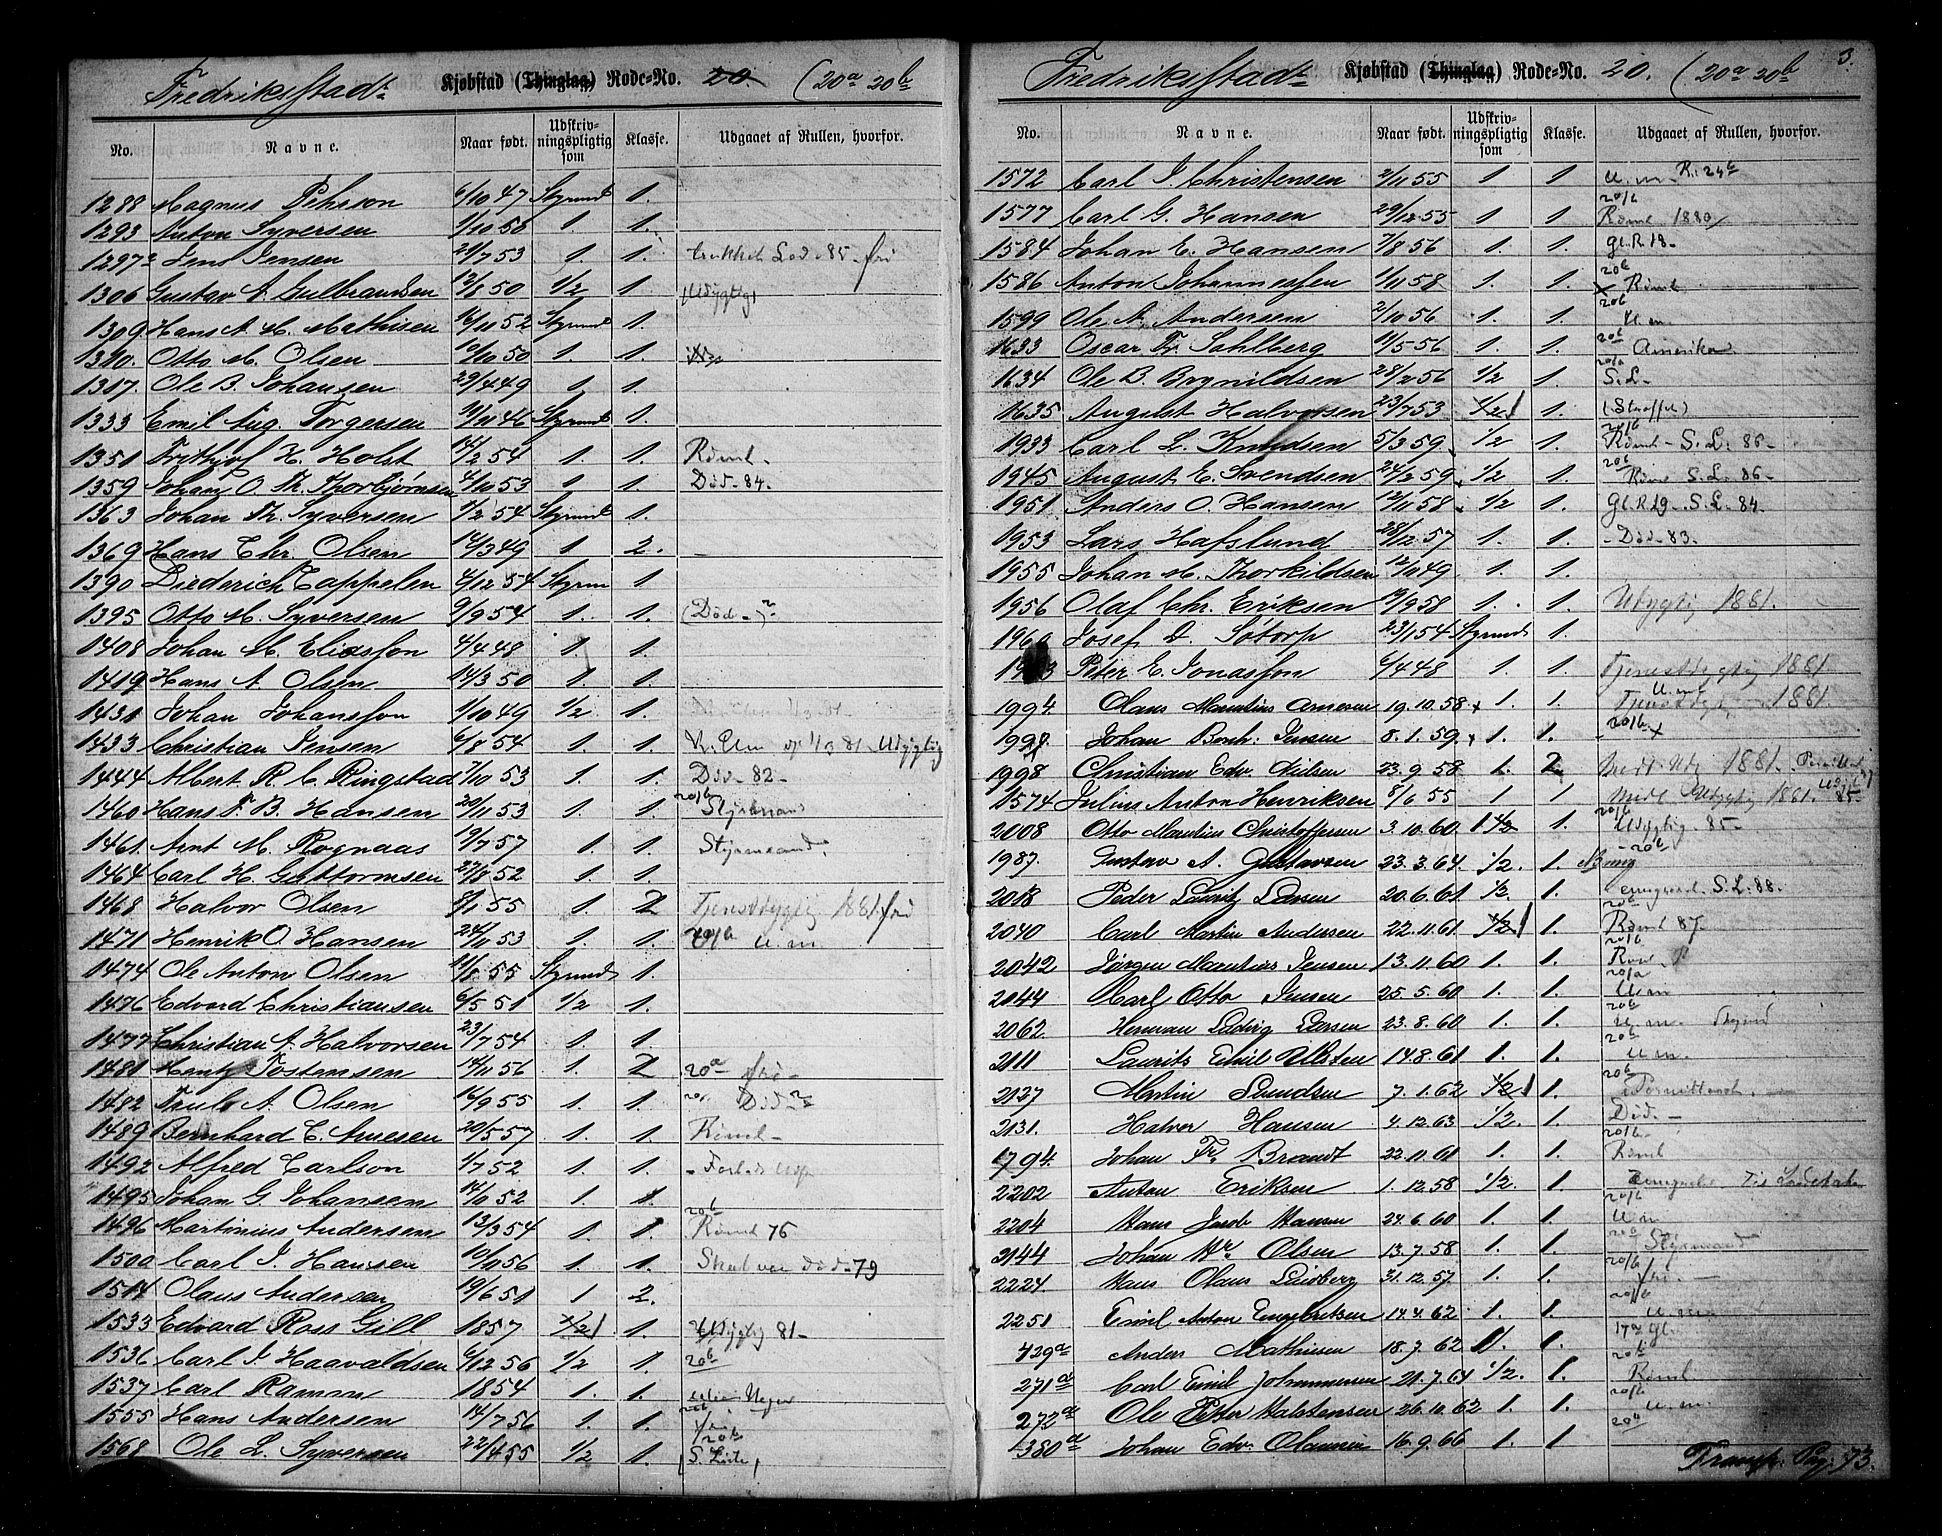 Fredriksstads Kjøbstad (Thinglag) Rode-No. 20. (20a 20b
No. Navne. Naar født. Udskrivningspligtig som Klasse. Udgaaet af Rullen, hvorfor.
1288 Magnus Pehrson 6/10 47 Styrmd 1.
1293 Anton Syversen 1/10 50 1 1.
1297 Jens Jensen 21/7 53 1. 1. trukket Lod. 85- fri
1306 Gustav A. Gulbrandsen 12/8 50 1/2 1. (Udygtig)
1309 Hans A. M. Mathisen 16/11 52 Styrmd 1.
1310. Otto M. Olsen 10/10 50 1. 1.
1317. Ole B. Johansen 29/4 49 1 1.
1333 Emil Aug. Torgersen 11/11 46 Styrmd 1.
1351 Frithjof H. Holst 14/2 54 1. 1. Rømt-
1359 Johan O. Th. Thorbjørnsen 4/10 53 1. 1. Død-84.
1363 Johan Th. Syversen 1/2 54 Styrmd 1.
1369 Hans Chr. Olsen 14/3 49 1 2.
1390 Diederich Cappelen 4/12 54 Styrm 1.
1395 Otto M. Syversen 9/9 54 1. 1. (Død-)
1408 Johan M. Eliasson 4/4 48 1. 1.
1419 Hans A. Olsen 14/3 50 1. 1.
1431 Johan Johansson 1/10 49 1/2 1.
1433 Christian Jensen 6/8 54 1. 1. Udygtig
1444 Albert R. C. Ringstad 7/10 53 1. 1. Død-82-
1460 Hans F. B. Hansen 20/11 53 1. 1. 20/b Styrmand
1461. Arnt M. Rognaas 19/7 57 1. 1. Styrmand.
1464 Carl H. Guttormsen 27/8 52 1. 1.
1468 Halvor Olsen 8/1 55 1. 2 Tjenstdygtig 1881. fri
1471 Henrik O. Hansen 24/11 53 1. 1. 20/b U.m
1474 Ole Anton Olsen 11/8 55 Styrmd 1.
1476 Edvard Christiansen 6/5 51 1/2 1.
1477 Christian A. Halvorsen 23/7 54 1. 1.
1481 Hentz Tostensen 14/11 56 1. 2 20a fri-
1482 Truls A. Olsen 16/9 55 1. 1. Død
1489 Bernhard C. Arnesen 20/5 57 1. 1. Rømt-
1492 Alfred Carlson 1/7 52 1. 1.
1495 Johan G. Johansen 14/10 52 1. 1.
1496 Martinius Andersen 13/3 54 1. 1. 20b Rømt 76
1500 Carl J. Hansen 10/10 56 1. 1. Skal være død-79
1514 Olaus Andersen 19/6 51 1 2.
1533 Edvard Ross Gill 1857 1/2 1 1. Udygtig 81-
1536 Carl J. Haavaldsen 6/12 56 1/2 1. 20b
1537 Carl Ramm 1854 1. 1.
1555 Hans Andersen 14/7 56 1. 1.
1568 Ole L. Syversen 22/4 55 1/2 1. 20b (S. Liste)
Fredriksstads Kjøbstad (Thinglag) Rode-No. 20. (20a 20b 3.
No. Navne. Naar født. Udskrivningspligtig som Klasse. Udgaaet af Rullen, hvorfor.
1572 Carl J. Christensen 2/11 55 1 1. U.m- R. 24b
1577 Carl G. Hansen 29/12 55 1. 1. 20/b Rømt 1880
1584 Johan E. Hansen 7/8 56 1. 1. gl. R 13-
1586 Anton Johannessen 1/11 58 1. 1. 20b Rømt
1599 Ole A. Andersen 2/10 56 1. 1. 20b U.m.
1633 Oscar Fr. Sahlberg 11/5 56 1. 1. 20b Amerika.
1634 Ole B. Brynildsen 28/2 56 1/2 1. 20/a S.L-
1635 August Halvorsen 23/7 53 1/2 1 1. (Straffet)
1933 Carl L. Knudsen 5/3 59 1/2 1. 20/b Rømt- S.L. 86-
1945 August E. Svendsen 24/2 59 1/2 1. 20b Rømt S.L. 86-
1951 Anders O. Hansen 12/11 58 1/2 1. gl. R 19-. S.L. 84.
1953 Lars Hafslund 28/12 57 1. 1. -Død-83.
1955 Johan M. Thorkildsen 12/11 49 1. 1.
1956 Olaf Chr. Eriksen 19/9 58 1. 1. Udygtig 1881.
1960 Josef D. Søtorp 23/1 54 Styrmd 1.
Peter E. Jonasson 6/4 48 1. 1. Tjenstdygtig 1881
1994. Olaus Martilius Arnesen 19.10.58 1. 1. U.m. 1881.
Johan Bernh. Jensen 8.1.59. 1. 1. 20/b x
1998 Christian Edv. Nielsen 23.9.58 1. 2 1881.
1574 Julius Anton Henriksen 8/6 55 1 1 Midl. Udygtig 1881. 85-
2008 Otto Martius Christoffersen 3.10.60 1 1/2 1. 20/b Udygtig. 85-
1987. Gustav A. Gustavsen 23.3.64. 1/2. 1. 20b
2018 Peder Lauritz Larsen 20.6.61 1/2. 1. emigreret. S.L. 88.
2040 Carl Martin Andersen 22.11.61 1/2 1 1. 20b Rømt 87.
2042 Jørgen Martilius Jensen 13.11.60 1. 1. 20/b Rømt
2044 Karl Otto Jensen 25.5.60 1. 1. 20/a U.m
2062 Herman Ludvig Larsen 23.8.60 1. 1. 20b U.m.
2111 Laurits Emil Ulsten 14.8.61 1. 1. 20b U.m.
2137 Martin Lundsen 7.1.62 1/2 1 1. 20b Permitteret.
2131. Halvor Hansen 4.12.63 1/2. 1. Død.-
1794. Johan Fr. Brandt 22.11.61 1. 1. 20/b Rømt
2202 Anton Eriksen 1.12.58 1/2. 1.
2204 Hans Jacob Hansen 24.6.60 1. 1. 20/b U.m
2144 Johan Hr. Olsen 13.7.58 1. 1. 20a Styrmand
2224. Hans Olaus Lindberg 31.12.57 1. 1. 20/b
2251 Emil Anton Engebretsen 14.4.62 1. 1. 20/b U.m
429a Anders Mathisen 18.7.62 1. 1. 17a gl.
271a Carl Emil Johannesen 21.7.61 1/2. 1. 20b Rømt
272a Ole Petter Halstensen 26.10.62 1. 1 20/b U.m.
380a Johan Edv. Olaussen 16.9.66 1. 1 20a
Transp. Pag. 73.